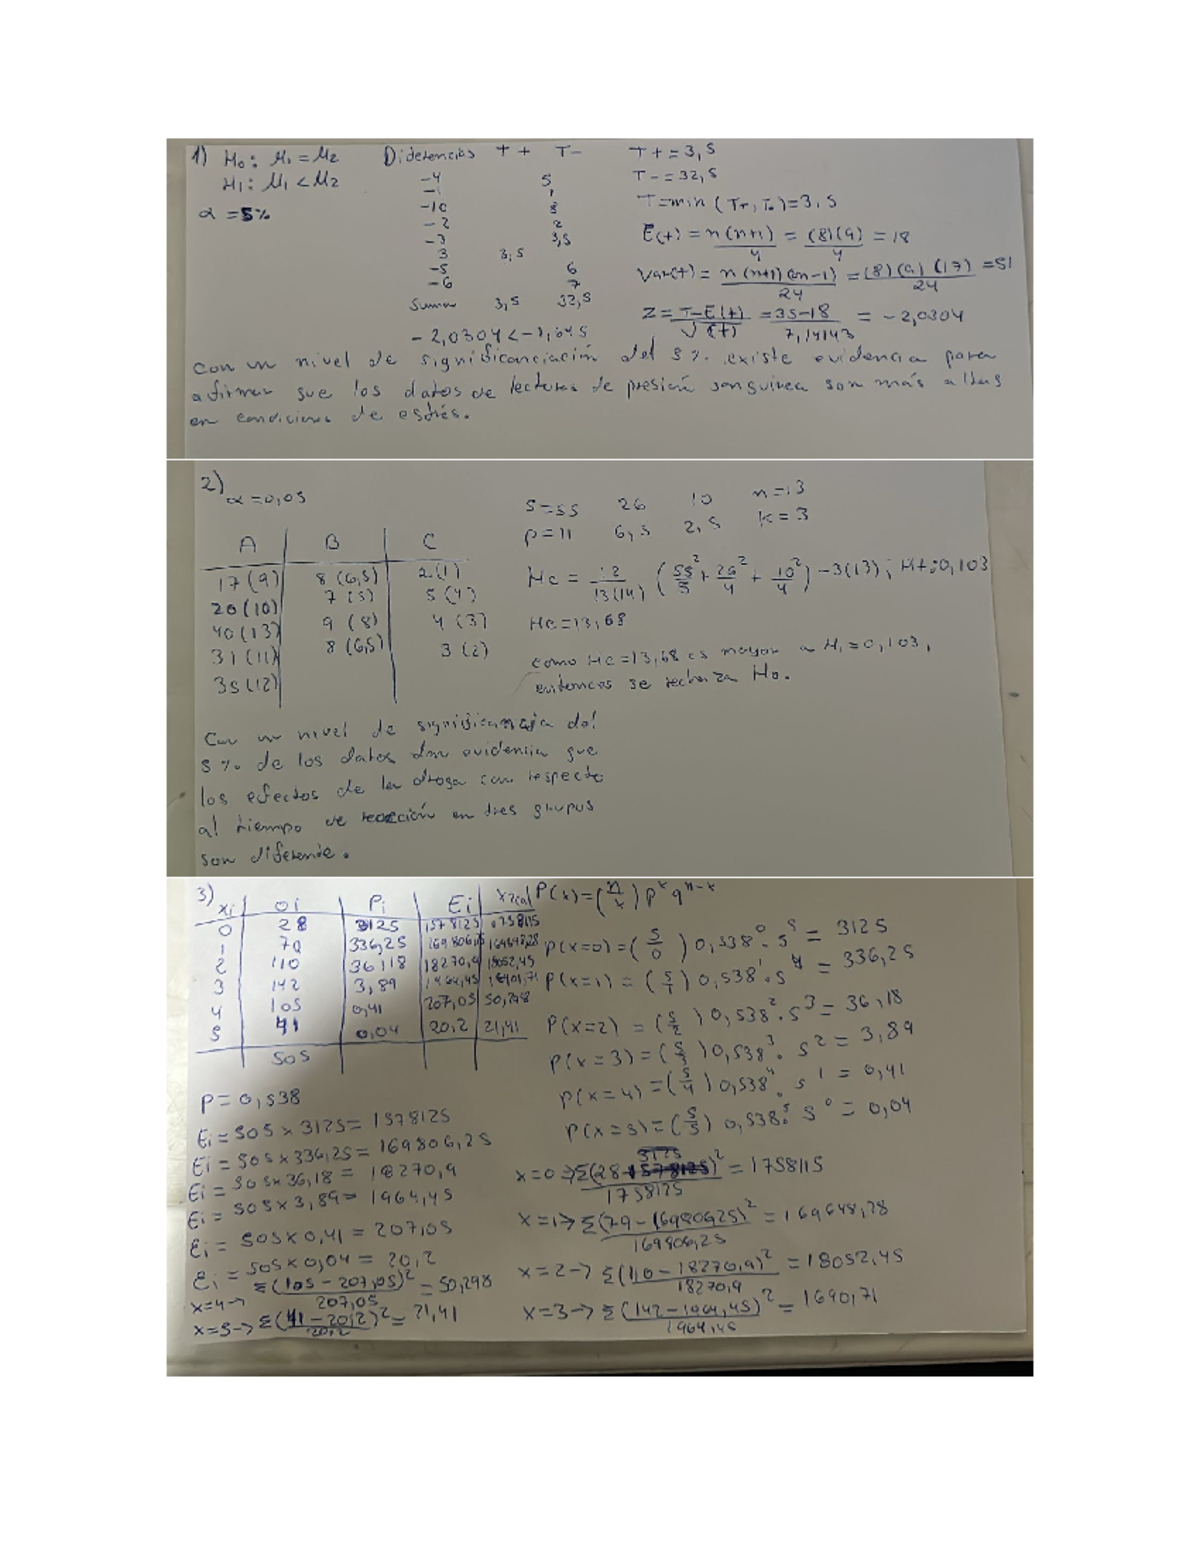 1) H₀: M₁ = M₂
H₁: M₁ < M₂
α = 5%
Diferencias T+ T-
-4 5
-1 1
-10 8
-2 2
-3 3,5
3 3,5
-5 6
-6 7
Suma 3,5 32,5
T+ = 3,5
T- = 32,5
T = min (T+, T-) = 3,5
E(t) = n(n+1)/4 = (8)(9)/4 = 18
Var(t) = n(n+1)(2n-1)/24 = (8)(9)(17)/24 = 51
Z = T-E(t)/√(t) = 35-18/7,14143 = -2,0304
-2,0304 < -1,645
Con un nivel de significanciación del 5%. existe evidencia para
afirmar que los datos de lecturas de presión sanguinea son más altas
en condiciones de estrés.
2) α = 0,05
A B C
17 (9) 8 (6,5) 2 (1)
20 (10) 7 (5) 5 (4)
40 (13) 9 (8) 4 (3)
31 (11) 8 (6,5) 3 (2)
35 (12)
S = 55 26 10 n = 13
p = 11 6,5 2,5 k = 3
Hc = 12/13(14) (55²/5 + 26²/4 + 10²/4) - 3(13); Ht: 0,103
Hc = 13,68
como Hc = 13,68 es mayor a H₁ = 0,103,
entonces se rechaza H₀.
Con un nivel de significancia del
5%. de los datos dan evidencia que
los efectos de la droga con respecto
al tiempo de reacción en tres grupos
son diferente.
3)
xi oi Pi Ei X²cal
0 28 3125 1578125
1 70 336,25 169806,25 169648,28
2 110 36,118 18270,9 18052,45
3 142 3,89 1964,45
4 105 0,41 207,05 50,298
5 41 0,04 20,2 21,41
505
P(x) = (n/x) p^x q^(n-x)
P(x=0) = (5/0) 0,538⁰ · 5⁵ = 3125
P(x=1) = (5/1) 0,538¹ · 5⁴ = 336,25
P(x=2) = (5/2) 0,538² · 5³ = 36,18
P(x=3) = (5/3) 0,538³ · 5² = 3,89
P(x=4) = (5/4) 0,538⁴ · 5¹ = 0,41
P(x=5) = (5/5) 0,538⁵ · 5⁰ = 0,04
P = 0,538
Ei = 505 x 3125 = 1578125
Ei = 505 x 336,25 = 169806,25
Ei = 505 x 36,18 = 18270,9
Ei = 505 x 3,89 = 1964,45
Ei = 505 x 0,41 = 207,05
Ei = 505 x 0,04 = 20,2
x=4 → Σ(105 - 207,05)²/207,05 = 50,298
x=5 → Σ(41 - 20,2)²/20,2 = 21,41
x=0 → Σ(28 - 3125)²/1758125 = 1758115
x=1 → Σ(79 - 169806,25)²/169806,25 = 169648,28
x=2 → Σ(110 - 18270,9)²/18270,9 = 18052,45
x=3 → Σ(142 - 1964,45)²/1964,45 = 1690,71